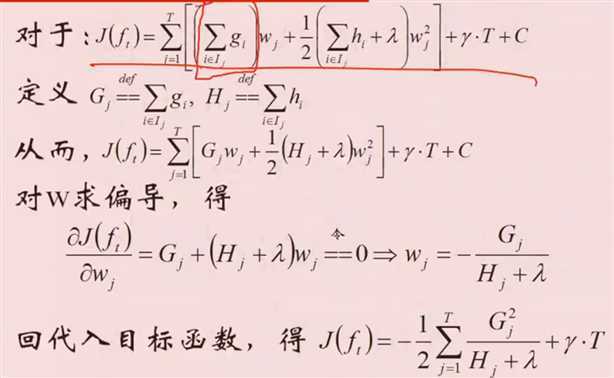 对于：J(f_t)=∑_{j=1}^{T}[(∑_{i∈I_j} g_i)w_j+1/2(∑_{i∈I_j} h_i+λ)w_j^2]+γ·T+C
定义 G_j \overset{def}{==} ∑_{i∈I_j} g_i, H_j \overset{def}{==} ∑_{i∈I_j} h_i
从而，J(f_t)=∑_{j=1}^{T}[G_j w_j+1/2(H_j+λ)w_j^2]+γ·T+C
对W求偏导，得
∂J(f_t)/∂w_j=G_j+(H_j+λ)w_j \overset{令}{==} 0⇒w_j=-G_j/(H_j+λ)
回代入目标函数，得 J(f_t)=-1/2∑_{j=1}^{T} G_j^2/(H_j+λ)+γ·T